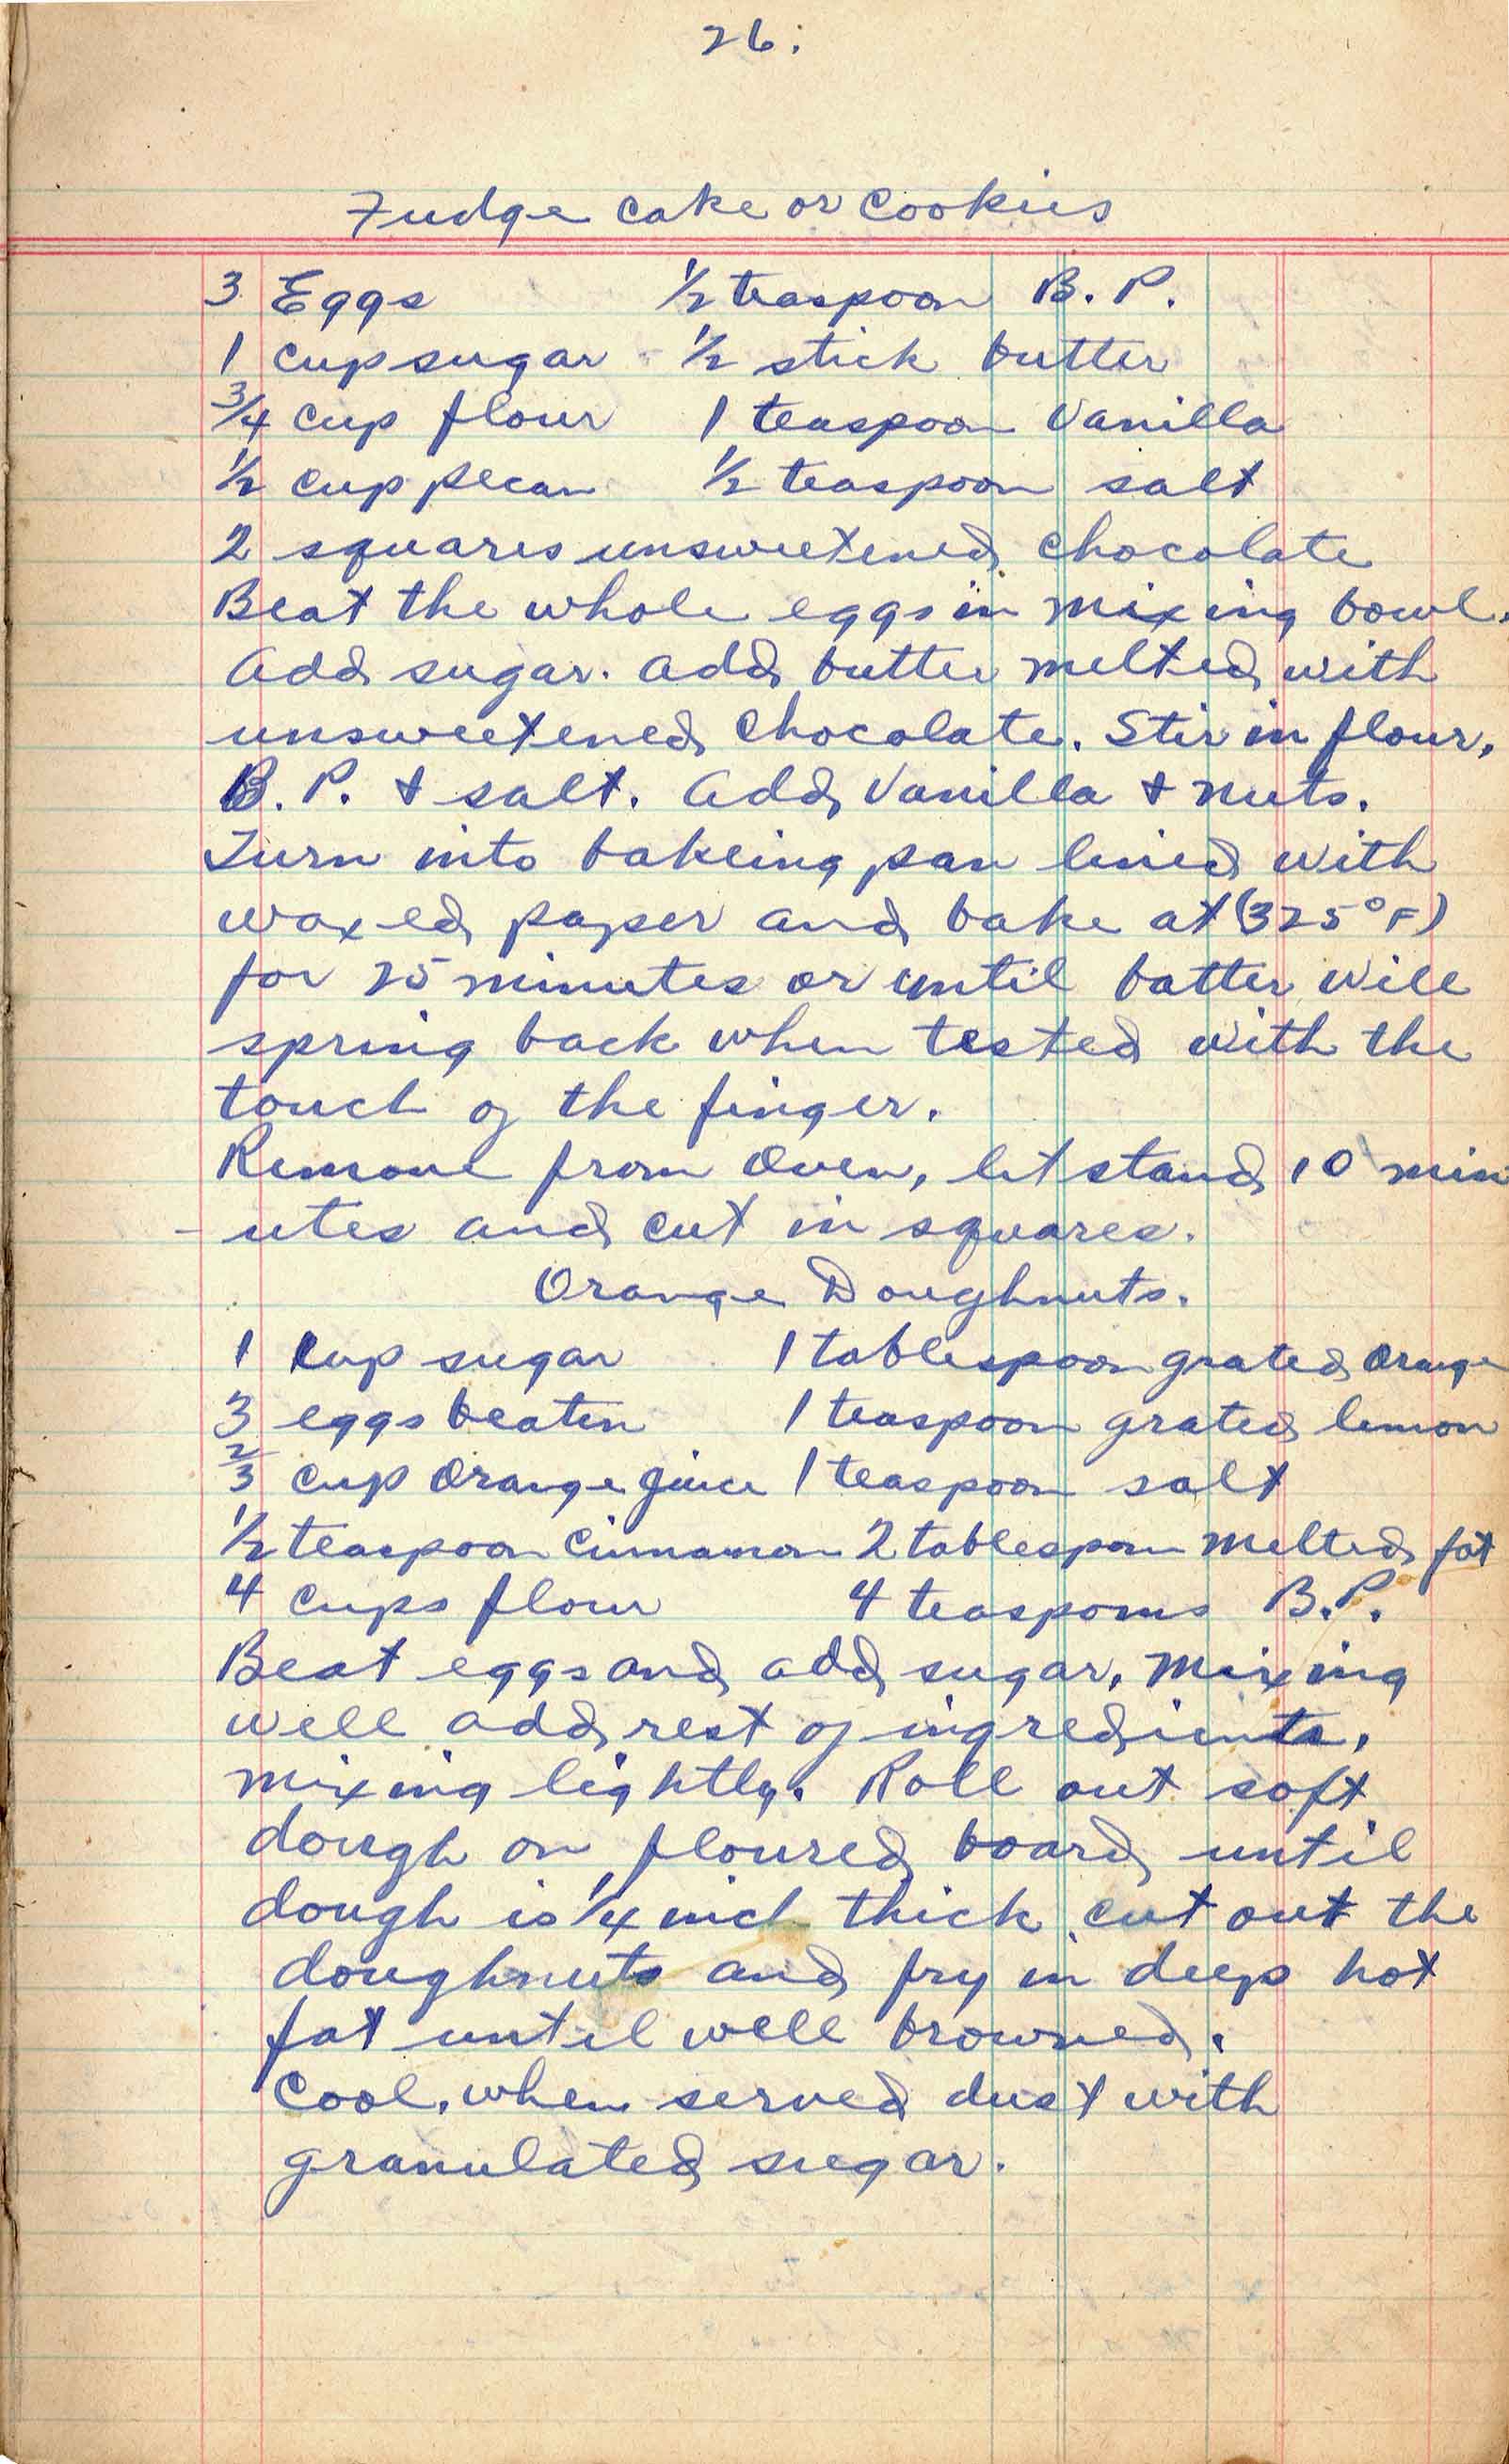 26.
Fudge cake or Cookies
3 Eggs 1/2 teaspoon B. P.
1 cup sugar 1/2 stick butter
3/4 cup flour 1 teaspoon Vanilla
1/2 cup pecan 1/2 teaspoon salt
2 squares unsweetened chocolate
Beat the whole eggs in mixing bowl.
Add sugar. Add butter melted with
unsweetened chocolate. Stir in flour,
B. P. & salt. Add Vanilla & nuts.
Turn into bakeing pan lined with
waxed paper and bake at (325°F)
for 25 minutes or until batter will
spring back when tested with the
touch of the finger.
Remove from Oven, let stand 10 min
-utes and cut in squares.
Orange Doughnuts.
1 cup sugar 1 tablespoon grated Orange
3 eggs beaten 1 teaspoon grated lemon
2/3 cup Orange juice 1 teaspoon salt
1/2 teaspoon Cinnamon 2 tablespoon melted fat
4 cups flour 4 teaspoons B.P.
Beat eggs and add sugar, mixing
well add rest of ingredients,
mixing lightly. Roll out soft
dough on floured board until
dough is 1/4 inch thick cut out the
doughnuts and fry in deep hot
fat until well browned.
Cool, when served dust with
granulated sugar.